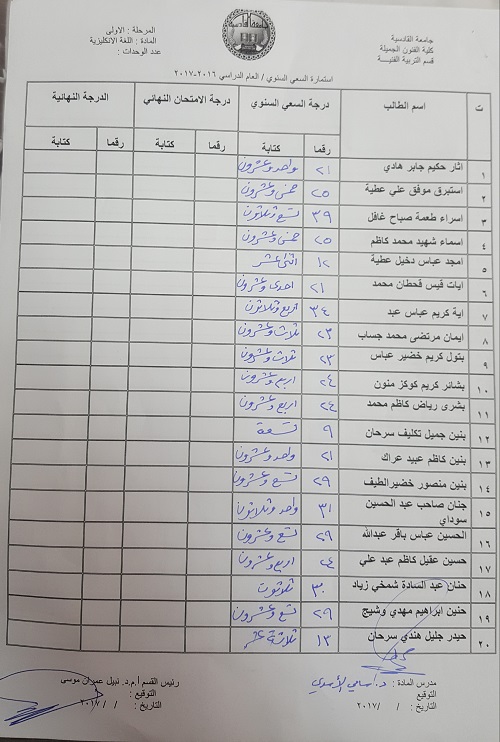 جامعة القادسية
كلية الفنون الجميلة
قسم التربية الفنية
المرحلة : الاولى
المادة : اللغة الانكليزية
عدد الوحدات :
استمارة السعي السنوي / العام الدراسي ٢٠١٦-٢٠١٧
ت اسم الطالب درجة السعي السنوي درجة الامتحان النهائي الدرجة النهائية
رقما كتابة رقما كتابة رقما كتابة
١ اثار حكيم جابر هادي ٢١ واحد وعشرون
٢ استبرق موفق علي عطية ٢٥ خمس وعشرون
٣ اسراء طعمة صباح غافل ٣٩ تسع وثلاثون
٤ اسماء شهيد محمد كاظم ٢٥ خمس وعشرون
٥ امجد عباس دخيل عطية ١٢ اثنى عشر
٦ ايات قيس قحطان محمد ٢١ احدى وعشرون
٧ اية كريم عباس عبد ٣٤ اربع وثلاثون
٨ ايمان مرتضى محمد جساب ٢٣ ثلاث وعشرون
٩ بتول كريم خضير عباس ٢٣ ثلاث وعشرون
١٠ بشائر كريم كوكز منون ٢٤ اربع وعشرون
١١ بشرى رياض كاظم محمد ٢٤ اربع وعشرون
١٢ بنين جميل تكليف سرحان ٩ تسعة
١٣ بنين كاظم عبيد عراك ٢١ واحد وعشرون
١٤ بنين منصور خضيرالطيف ٢٩ تسع وعشرون
١٥ جنان صاحب عبد الحسين سوداي ٣١ واحد وثلاثون
١٦ الحسين عباس باقر عبدالله ٢٩ تسع وعشرون
١٧ حسين عقيل كاظم عبد علي ٢٤ اربع وعشرون
١٨ حنان عبد السادة شمخي زياد ٣٠ ثلاثون
١٩ حنين ابراهيم مهدي وشيج ٢٩ تسع وعشرون
٢٠ حيدر جليل هندي سرحان ١٣ ثلاثة عشر
مدرس المادة : د.
التوقيع
التاريخ : / / ٢٠١٧
رئيس القسم أ.م.د. نبيل عمران موسى
التوقيع :
التاريخ : / / ٢٠١٧